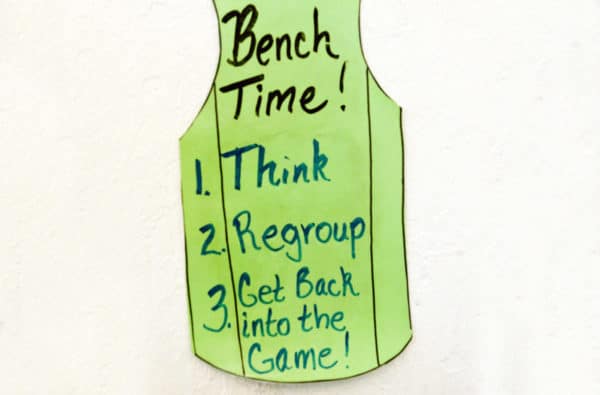 Bench
Time!
1. Think
2. Regroup
3. Get Back
into the
Game!